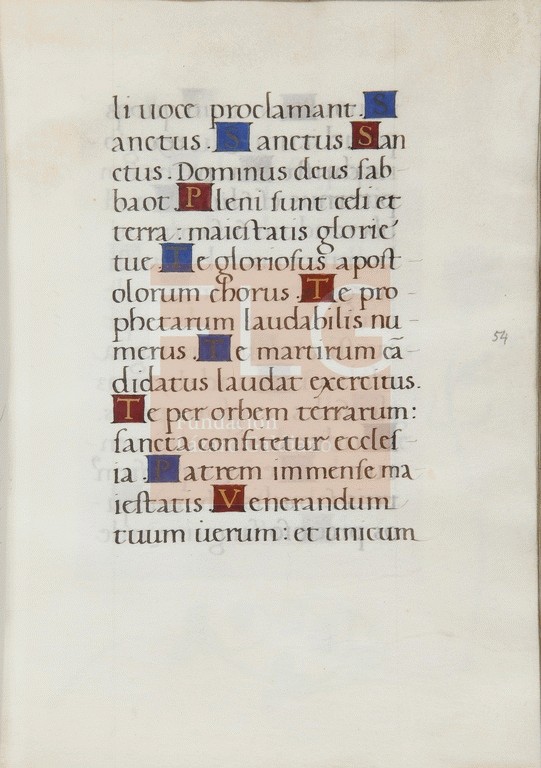 li uoce proclamant. S
anctus. S anctus S an
ctus. Dominus deus sab
baot P leni sunt celi et
terra: maiestatis glorie
tue T e gloriosus apost
olorum chorus. T e pro
phetarum laudabilis nu
merus. T e martirum cā
didatus laudat exercitus.
T e per orbem terrarum:
sancta confitetur eccles
ia. P atrem immense ma
iestatis. V enerandum
tuum uerum: et unicum
54
FLG
Fundación